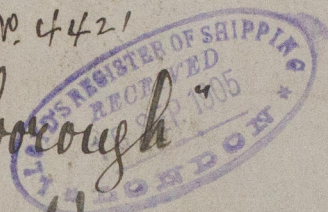 No. 4421
LLOYD'S REGISTER OF SHIPPING
RECEIVED
SEP. 1905
orough"
LONDON